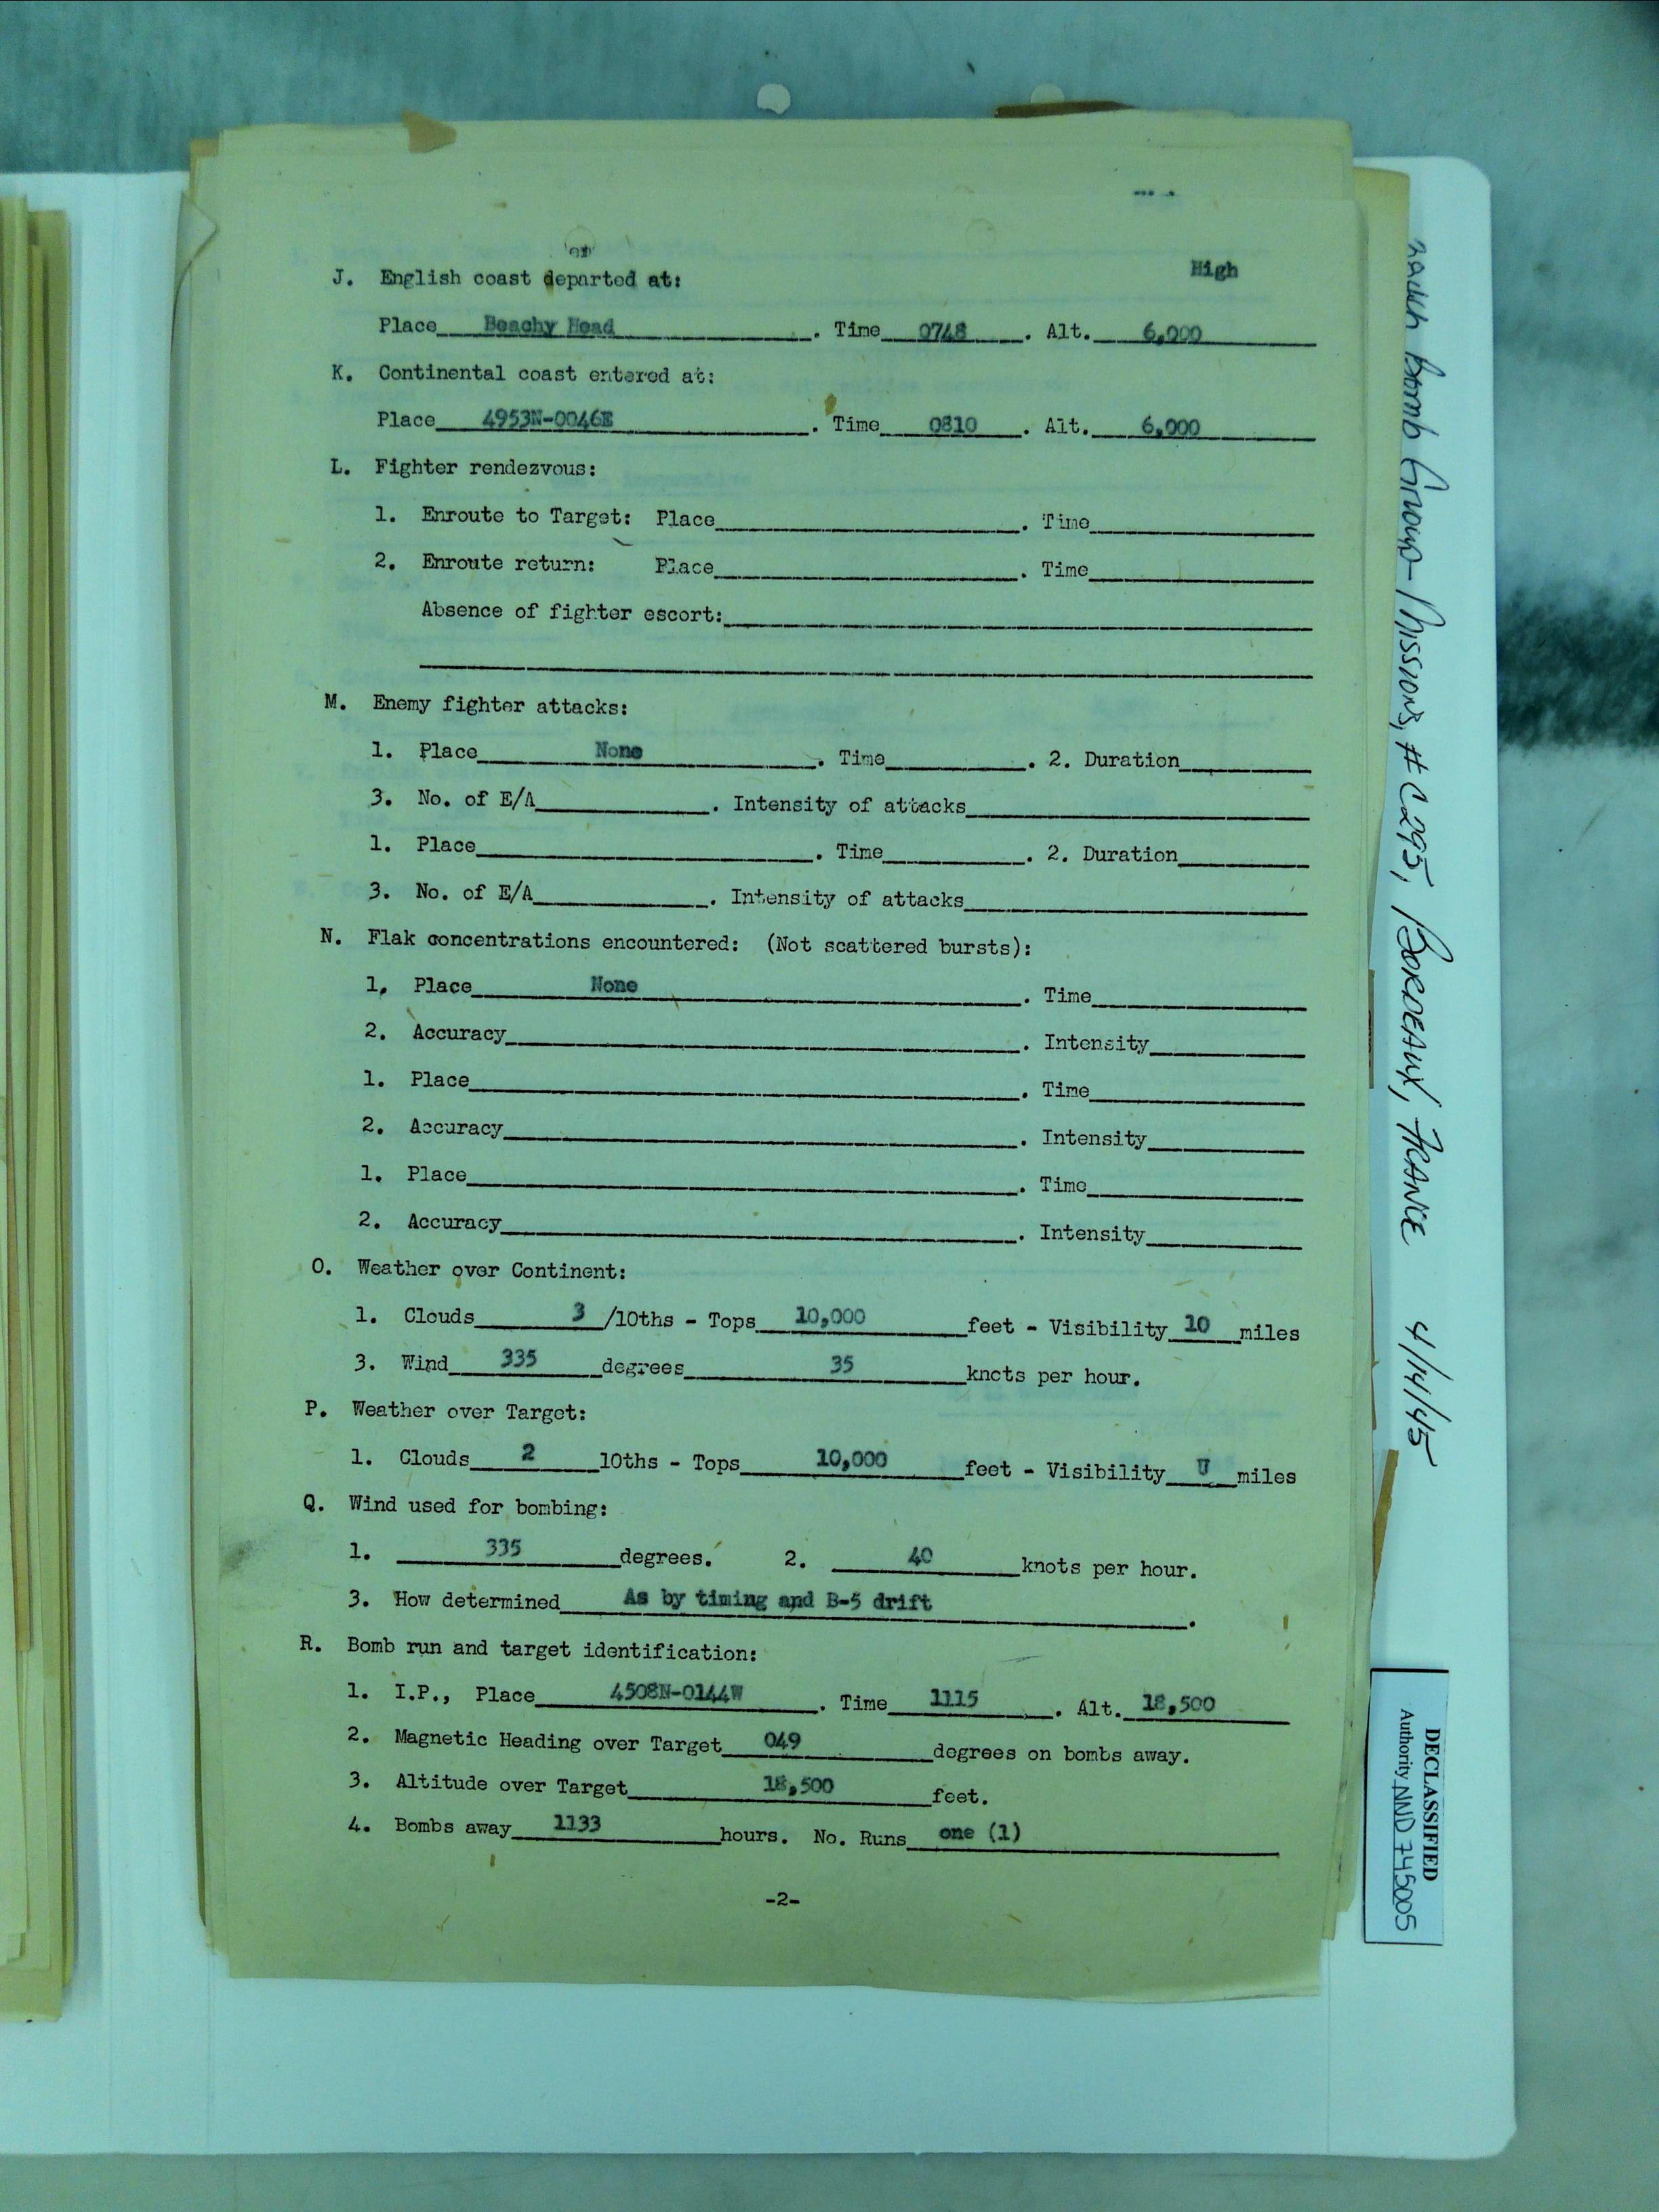 High
J. English coast departed at:
Place Beachy Head . Time 0748 . Alt. 6,000
K. Continental coast entered at:
Place 4953N-0046E . Time 0810 . Alt. 6,000
L. Fighter rendezvous:
1. Enroute to Target: Place . Time
2. Enroute return: Place . Time
Absence of fighter escort:
M. Enemy fighter attacks:
1. Place None . Time . 2. Duration
3. No. of E/A . Intensity of attacks
1. Place . Time . 2. Duration
3. No. of E/A . Intensity of attacks
N. Flak concentrations encountered: (Not scattered bursts):
1. Place None . Time
2. Accuracy . Intensity
1. Place . Time
2. Accuracy . Intensity
1. Place . Time
2. Accuracy . Intensity
O. Weather over Continent:
1. Clouds 3 /10ths - Tops 10,000 feet - Visibility 10 miles
3. Wind 335 degrees 35 knots per hour.
P. Weather over Target:
1. Clouds 2 10ths - Tops 10,000 feet - Visibility U miles
Q. Wind used for bombing:
1. 335 degrees. 2. 40 knots per hour.
3. How determined As by timing and B-5 drift .
R. Bomb run and target identification:
1. I.P., Place 4508N-0144W . Time 1115 . Alt. 18,500
2. Magnetic Heading over Target 049 degrees on bombs away.
3. Altitude over Target 18,500 feet.
4. Bombs away 1133 hours. No. Runs one (1)
-2-
Bomb Group - Missions, # C295, Bordeaux, France 4/14/45
DECLASSIFIED
Authority NND 745005